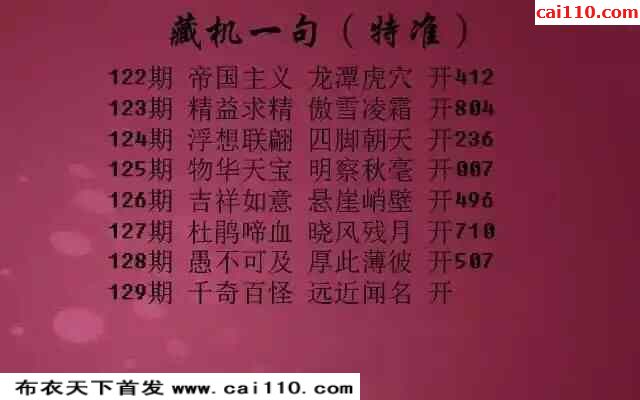 cai110.com
藏机一句（特准）
122期 帝国主义 龙潭虎穴 开412
123期 精益求精 傲雪凌霜 开804
124期 浮想联翩 四脚朝天 开236
125期 物华天宝 明察秋毫 开007
126期 吉祥如意 悬崖峭壁 开496
127期 杜鹃啼血 晓风残月 开710
128期 愚不可及 厚此薄彼 开507
129期 千奇百怪 远近闻名 开
布衣天下首发 www.cai110.com